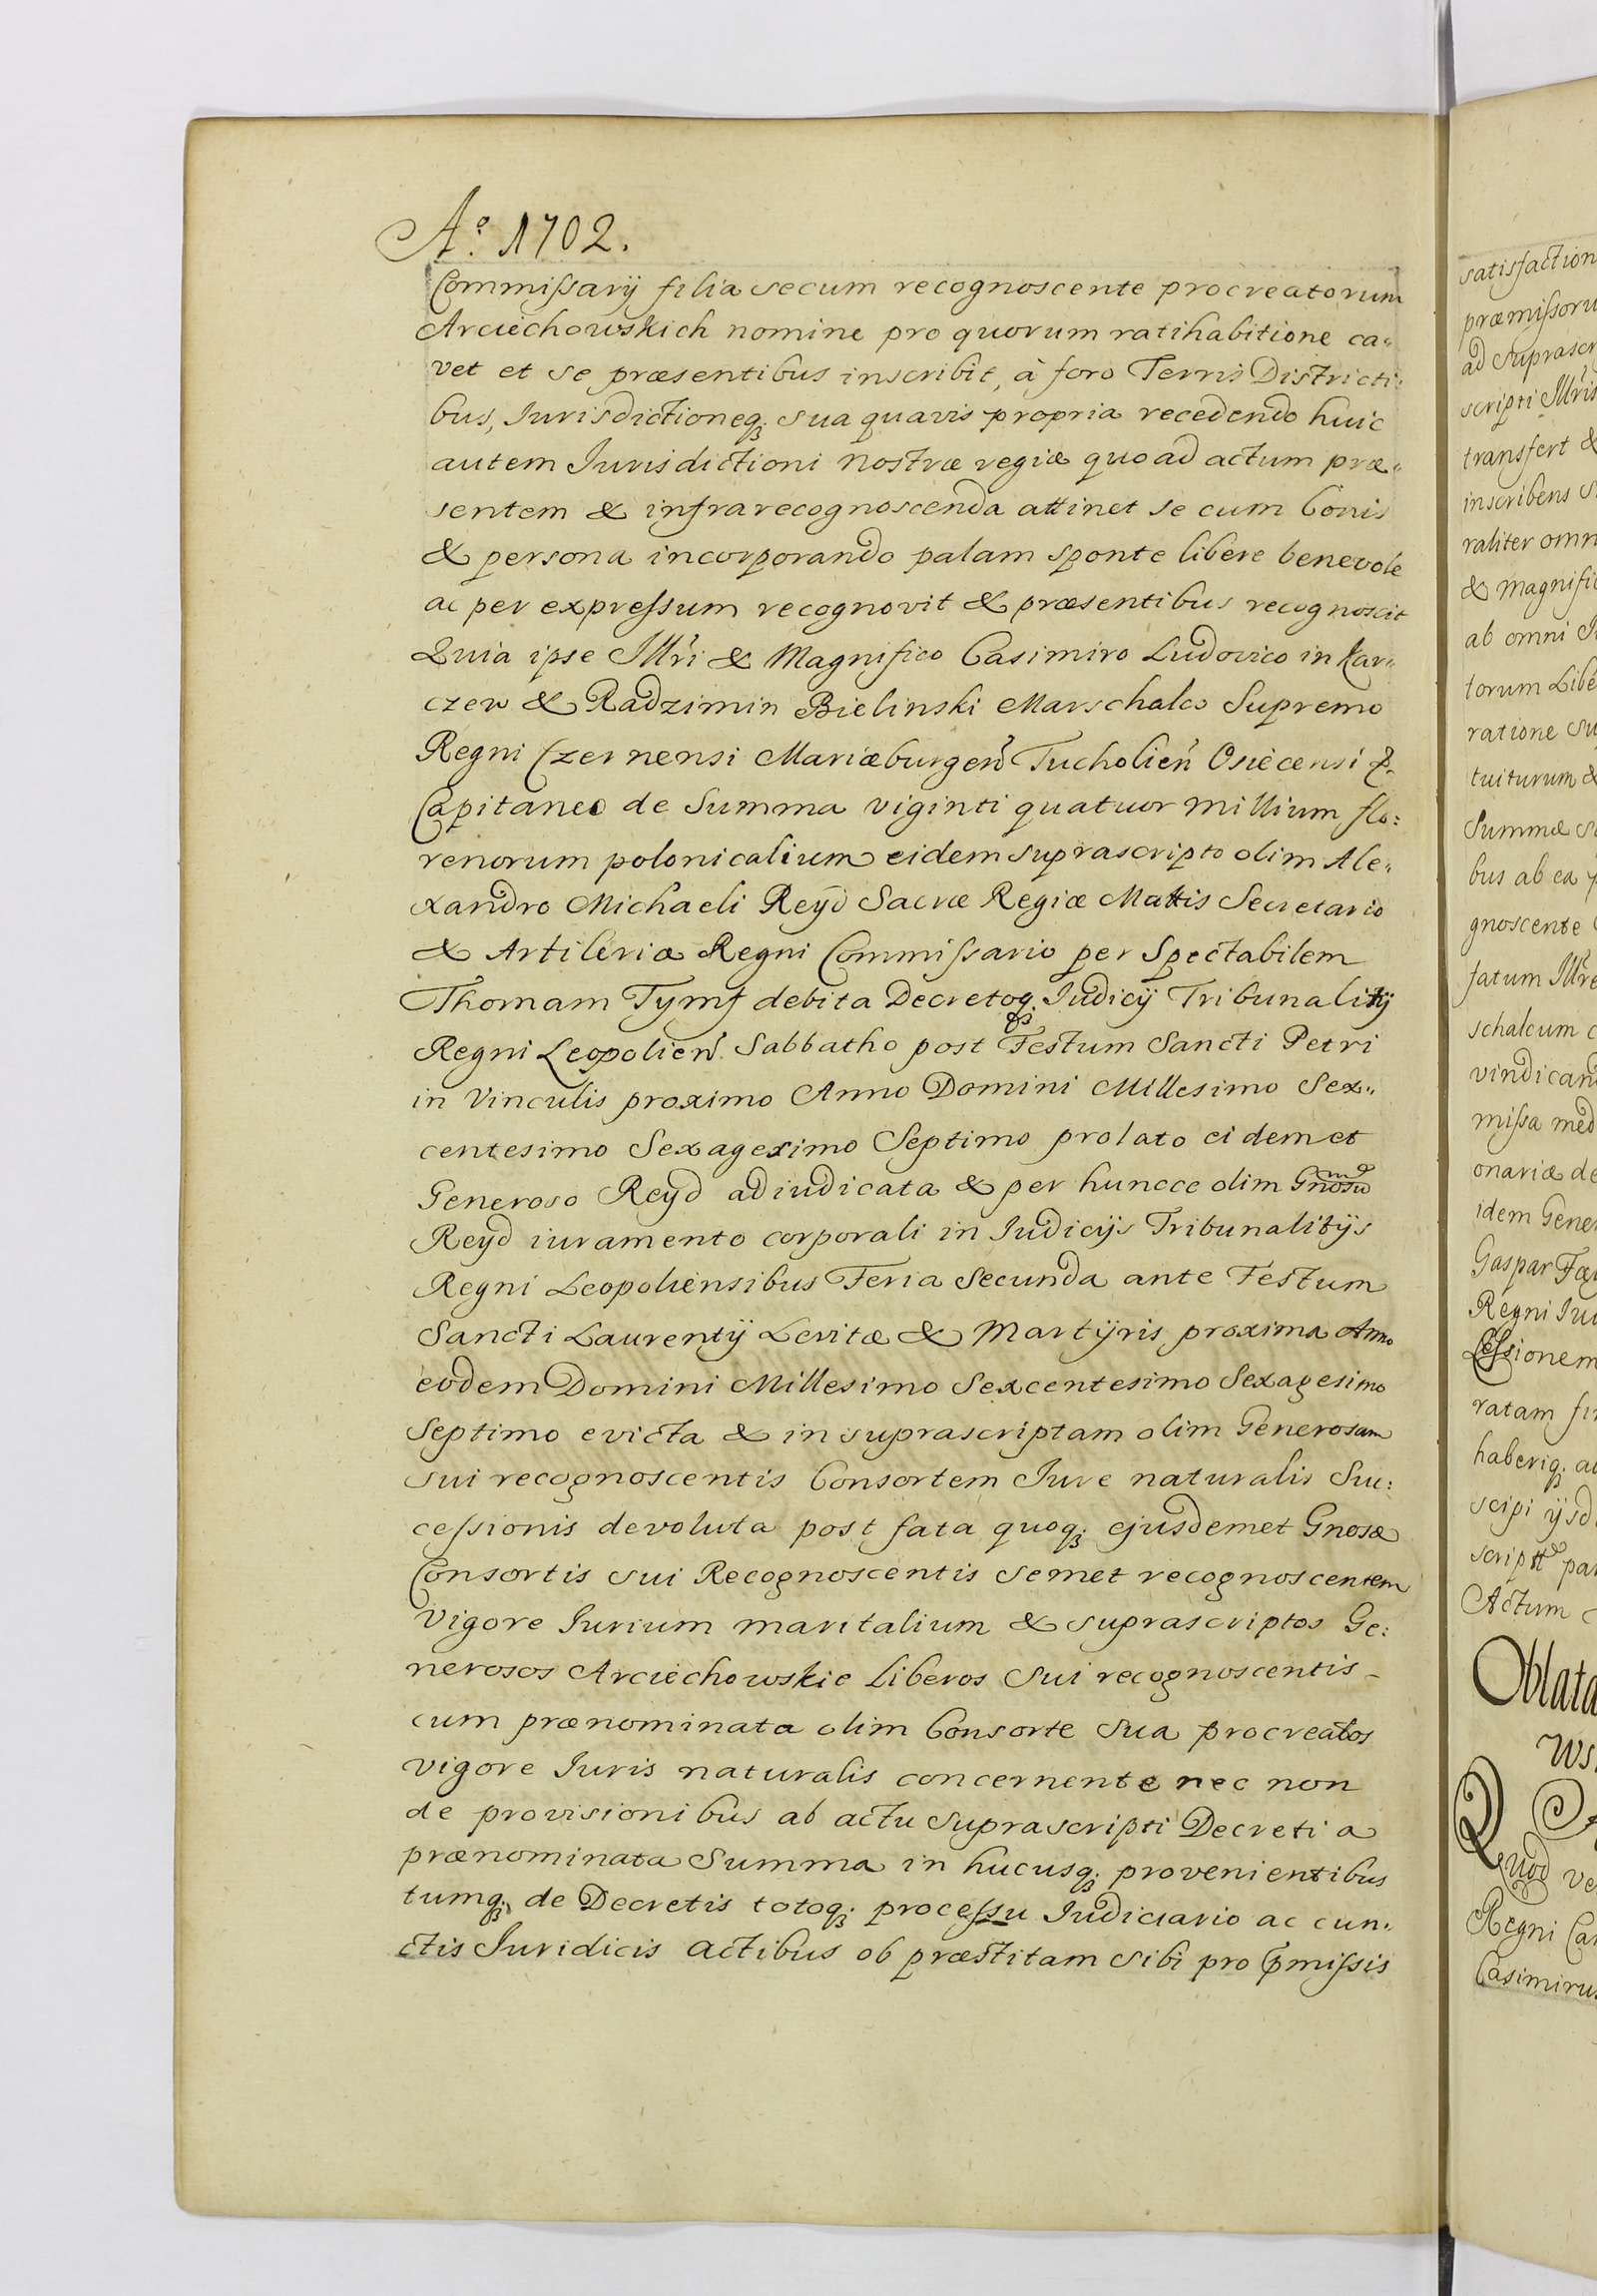 Aº. 1702.
Commißarÿ filia secum recognoscente procreatorum
Arciechowskich nomine pro quorum ratihabitione ca„
vet et se præsentibus inscribit, à foro Terris Districti:
bus, Iurisdictioneq₃ sua quavis propria recedendo huic
autem Iurisdictioni nostræ regiæ quo ad actum præ„
sentem & infrarecognoscenda attinet se cum bonis
& persona incorporando palam sponte libere benevole
ac per expreßum recognovit & præsentibus recognoscit
Quia ipse Illr̃i & Magnifico Casimiro Ludovico in Kar„
czew & Radzimin Bielinski Marschalco Supremo
Regni Czernensi Mariæburgen̄ Tucholien̄ Osiecensi &.
Capitaneo de Summa viginti quatuor millium flo:
renorum polonicalium eidem suprascripto olim Ale„
xandro Michaeli Reyd Sacræ Regiæ Mattis Secretario
& Artileriæ Regni Commißario per Spectabilem
Thomam Tymf debita Decretoq₃ Iudicÿ Tribunalitÿ
Regni Leopolien̄. Sabbatho post Festum Sancti Petri
in Vinculis proximo Anno Domini Millesimo Sex„
centesimo Sexagesimo Septimo prolato eidemet
Generoso Reyd adiudicata & per huncce olim Gnosũ
Reyd iuramento corporali in Iudicÿs Tribunalitÿs
Regni Leopoliensibus Feria Secunda ante Festum
Sancti Laurentÿ Levitæ & Martÿris proxima Anno
eodem Domini Millesimo Sexcentesimo Sexagesimo
Septimo evicta & in suprascriptam olim Generosam
sui recognoscentis Consortem Iure naturalis Suc:
ceßionis devoluta post fata quoq₃ ejusdemet Gnosæ
Consortis sui Recognoscentis semet recognoscentem
vigore Iurium maritalium & suprascriptos Ge:
nerosos Arciechowskie Liberos sui recognoscentis-
cum prænominata olim Consorte sua procreatos
vigore Iuris naturalis concernente nec non
de provisionibus ab actu suprascripti Decreti a
prænominata Summa in hucusq₃ provenientibus
tumq₃ de Decretis totoq₃ proceßu Iudiciario ac cun„
ctis Iuridicis actibus ob præstitam sibi pro p̄mißis
satisfaction
præmißoru
ad suprascr
scripti Illris
transfert &
inscribens
raliter omn
& magnific
ab omni
torum Libe
ratione su
tuiturum &
Summæ
bus ab ea
gnoscente
fatum Illre
schalcum
vindicand
mißa med
onariæ de
idem Gener
Gaspar
Regni
Ceßionem
ratam fir
haberiq₃
scipi ÿsd
script
Actum
Oblata
Quod ve
Regni
Casimirus